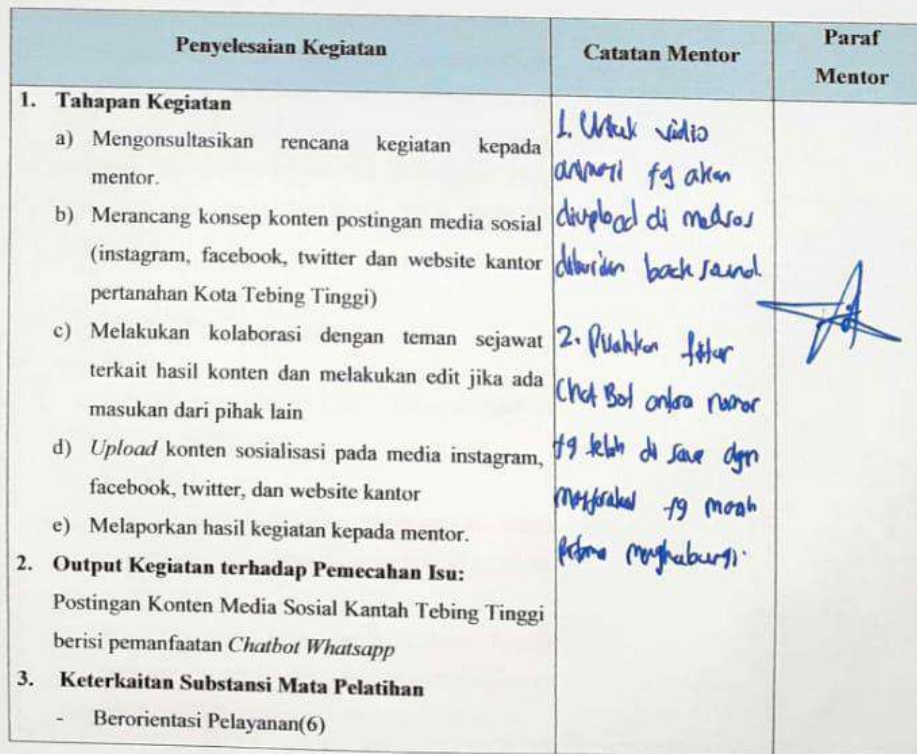 Penyelesaian Kegiatan
Catatan Mentor
Paraf
Mentor
1. Tahapan Kegiatan
a) Mengonsultasikan rencana kegiatan kepada
mentor.
b) Merancang konsep konten postingan media sosial
(instagram, facebook, twitter dan website kantor
pertanahan Kota Tebing Tinggi)
c) Melakukan kolaborasi dengan teman sejawat
terkait hasil konten dan melakukan edit jika ada
masukan dari pihak lain
d) Upload konten sosialisasi pada media instagram,
facebook, twitter, dan website kantor
e) Melaporkan hasil kegiatan kepada mentor.
2. Output Kegiatan terhadap Pemecahan Isu:
Postingan Konten Media Sosial Kantah Tebing Tinggi
berisi pemanfaatan Chatbot Whatsapp
3. Keterkaitan Substansi Mata Pelatihan
- Berorientasi Pelayanan(6)
1. Untuk vidio
animasi yg akan
diupload di medsos
back sound.
2. Pisahkan fitur
Chat Bot antara nomor
yg telah di save dgn
masyarakat yg
pertama menghubungi.